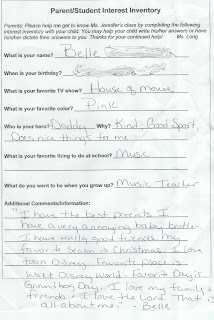 Parent/Student Interest Inventory
Parents: Please help me get to know Ms. Jennifer's class by completing the following
interest inventory with your child. You may help your child write his/her answers or have
him/her dictate their answers to you. Thanks for your continued help! Ms. Long
What is your name? Belle
When is your birthday?
What is your favorite TV show? House of Mouse
What is your favorite color? Pink
Who is your hero? Daddy Why? Kind, Good Sport,
Does nice things for me
What is your favorite thing to do at school? Music
What do you want to be when you grow up? Music Teacher
Additional Comments/Information:
"I have the best parents I
have a very annoying baby brother.
I have really good friends. My
favorite season is Christmas. I love
toon Disney. Favorite place is
Walt Disney World. Favorite Day is
Groundhog Day. I love my family +
friends + I love the Lord. That is
all about me." - Belle